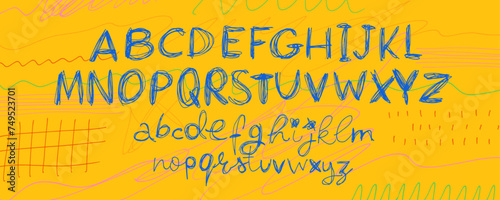 ABCDEFGHIJKL
MNOPQRSTUVWXYZ
abcdefghijklm
nopqrstuvwxyz
Adobe Stock | #749523701